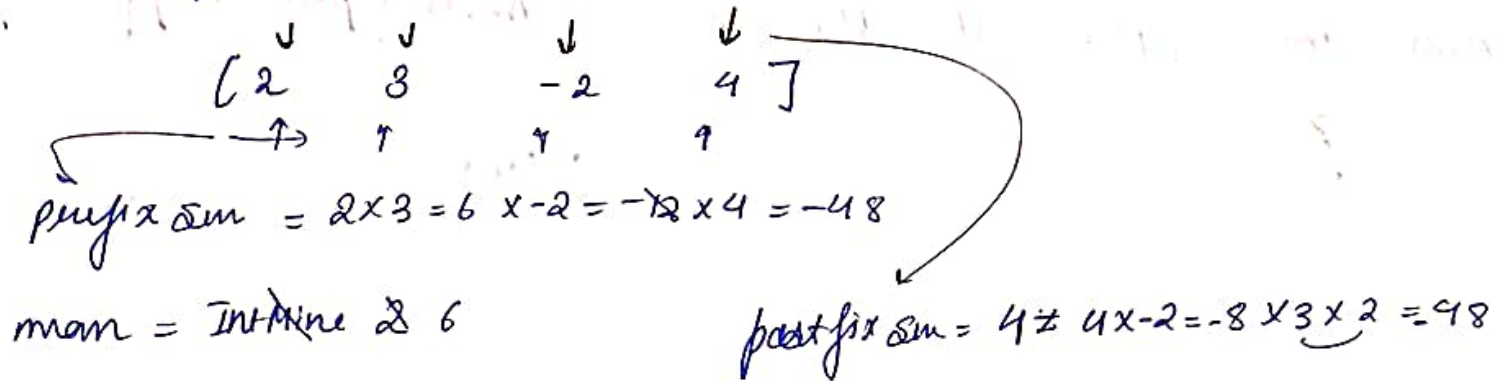 [2 3 -2 4]
prefix sum = 2×3 = 6 ×-2 = -12 ×4 = -48
max = Int Mine 2 6
postfix sum = 4 ≠ 4×-2 = -8 ×3×2 = -48